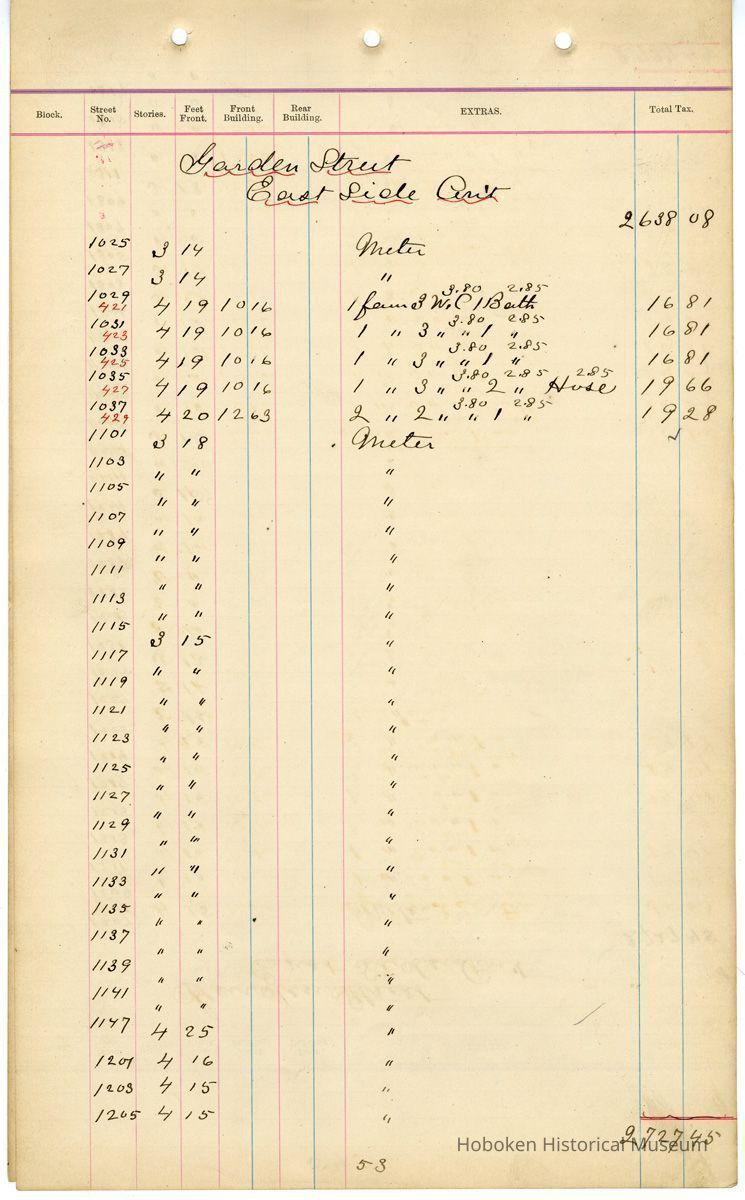 Block. Street No. Stories. Feet Front. Front Building. Rear Building. EXTRAS. Total Tax.
Garden Street
East Side Con't
2638 08
1025 3 14 Meter
1027 3 14 "
3.80 2.85
1029 421 4 19 10 16 1 fam 3 W.C 1 Bath 16 81
3.80 2.85
1031 423 4 19 10 16 1 " 3 " " 1 " 16 81
3.80 2.85
1033 425 4 19 10 16 1 " 3 " " 1 " 16 81
3.80 2.85 2.85
1035 427 4 19 10 16 1 " 3 " " 2 " Hose 19 66
3.80 2.85
1037 429 4 20 12 63 2 " 2 " " 1 " 19 28
1101 3 18 Meter
1103 " " "
1105 " " "
1107 " " "
1109 " " "
1111 " " "
1113 " " "
1115 3 15 "
1117 " " "
1119 " " "
1121 " " "
1123 " " "
1125 " " "
1127 " " "
1129 " " "
1131 " " "
1133 " " "
1135 " " "
1137 " " "
1139 " " "
1141 " " "
1147 4 25 "
1201 4 16 "
1203 4 15 "
1205 4 15 "
2727 45
Hoboken Historical Museum
53